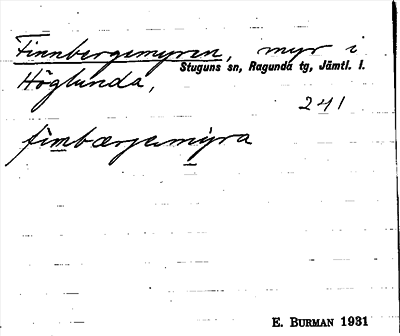 Finnbergemyren, myr i
Stuguns sn, Ragunda tg, Jämtl. l.
Höglunda,
241
fìmbærjemỳra
E. BURMAN 1931